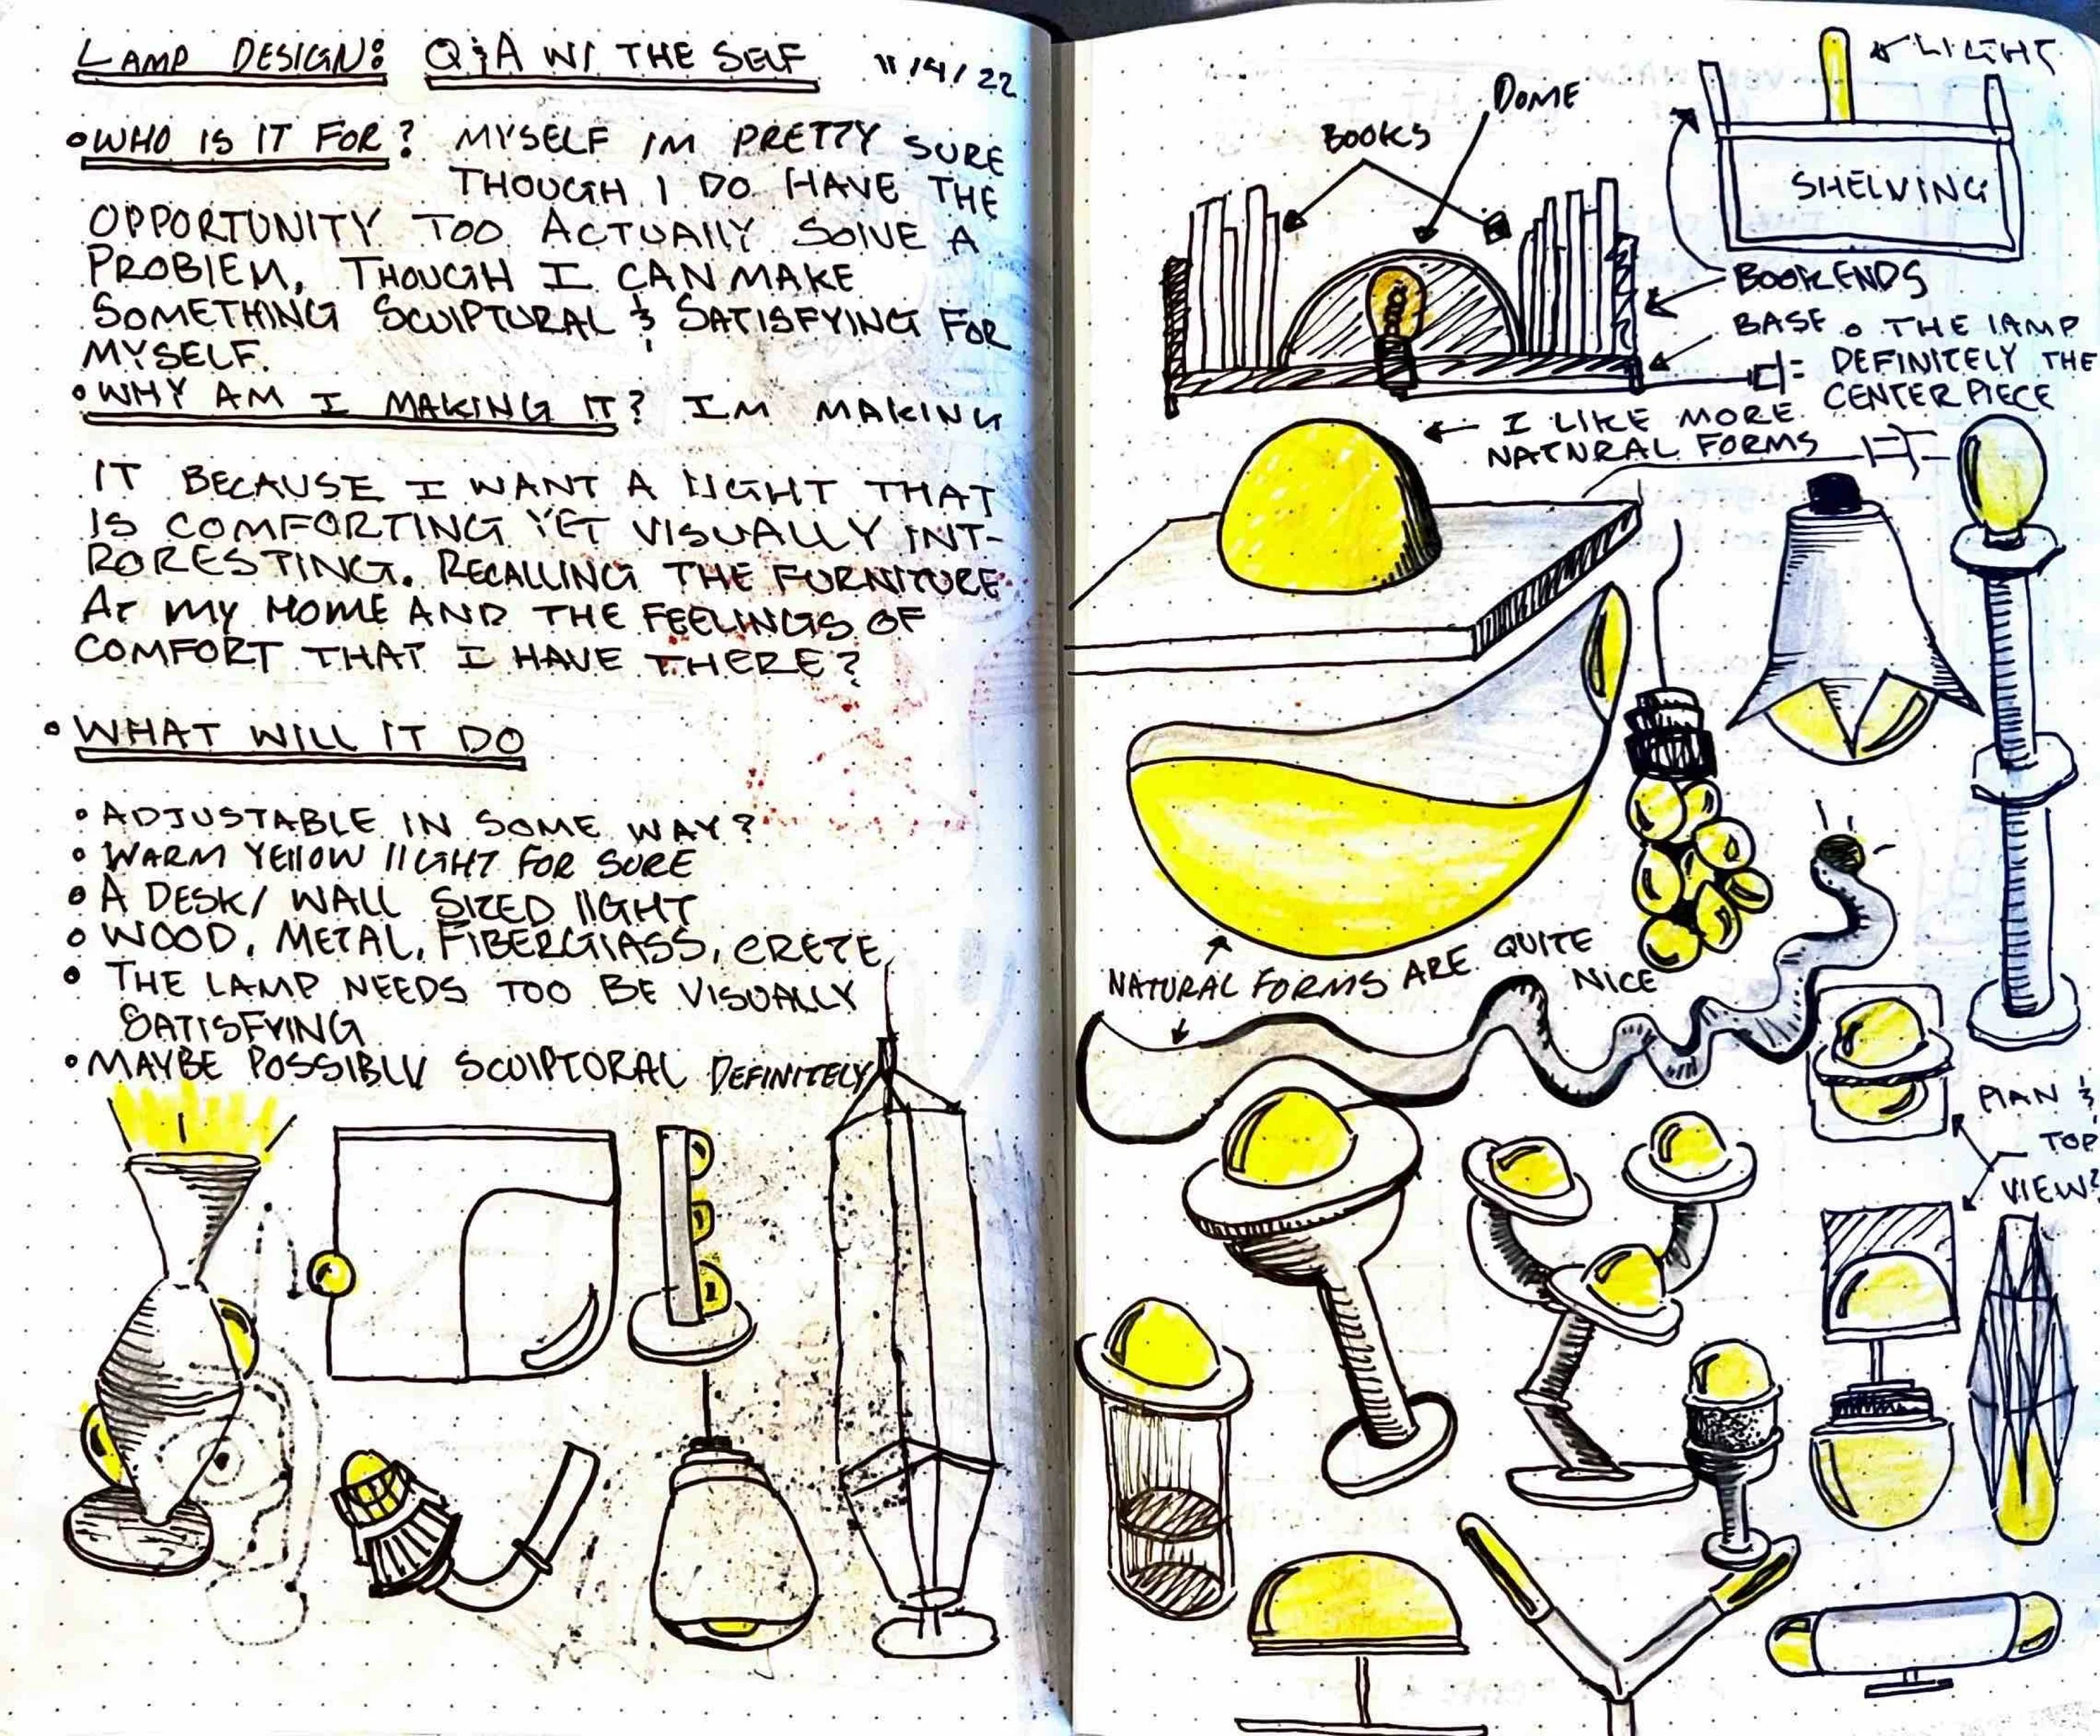 LAMP DESIGN: Q&A W/ THE SELF 11/4/22
• WHO IS IT FOR? MYSELF IM PRETTY SURE
THOUGH I DO HAVE THE
OPPORTUNITY TOO ACTUALLY SOLVE A
PROBLEM, THOUGH I CAN MAKE
SOMETHING SCULPTURAL & SATISFYING FOR
MYSELF.
• WHY AM I MAKING IT? IM MAKING
IT BECAUSE I WANT A LIGHT THAT
IS COMFORTING YET VISUALLY INT-
RORESTING. RECALLING THE FURNITURE
AT MY HOME AND THE FEELINGS OF
COMFORT THAT I HAVE THERE?
• WHAT WILL IT DO
• ADJUSTABLE IN SOME WAY?
• WARM YELLOW LIGHT FOR SURE
• A DESK/ WALL SIZED LIGHT
• WOOD, METAL, FIBERGLASS, CRETE
• THE LAMP NEEDS TOO BE VISUALLY
SATISFYING
• MAYBE POSSIBLY SCULPTORAL DEFINITELY
LIGHT
DOME
BOOKS
SHELVING
BOOKENDS
BASE • THE LAMP
DEFINITELY THE
CENTER PIECE
I LIKE MORE
NATURAL FORMS
NATURAL FORMS ARE QUITE
NICE
PLAN &
TOP
VIEW?